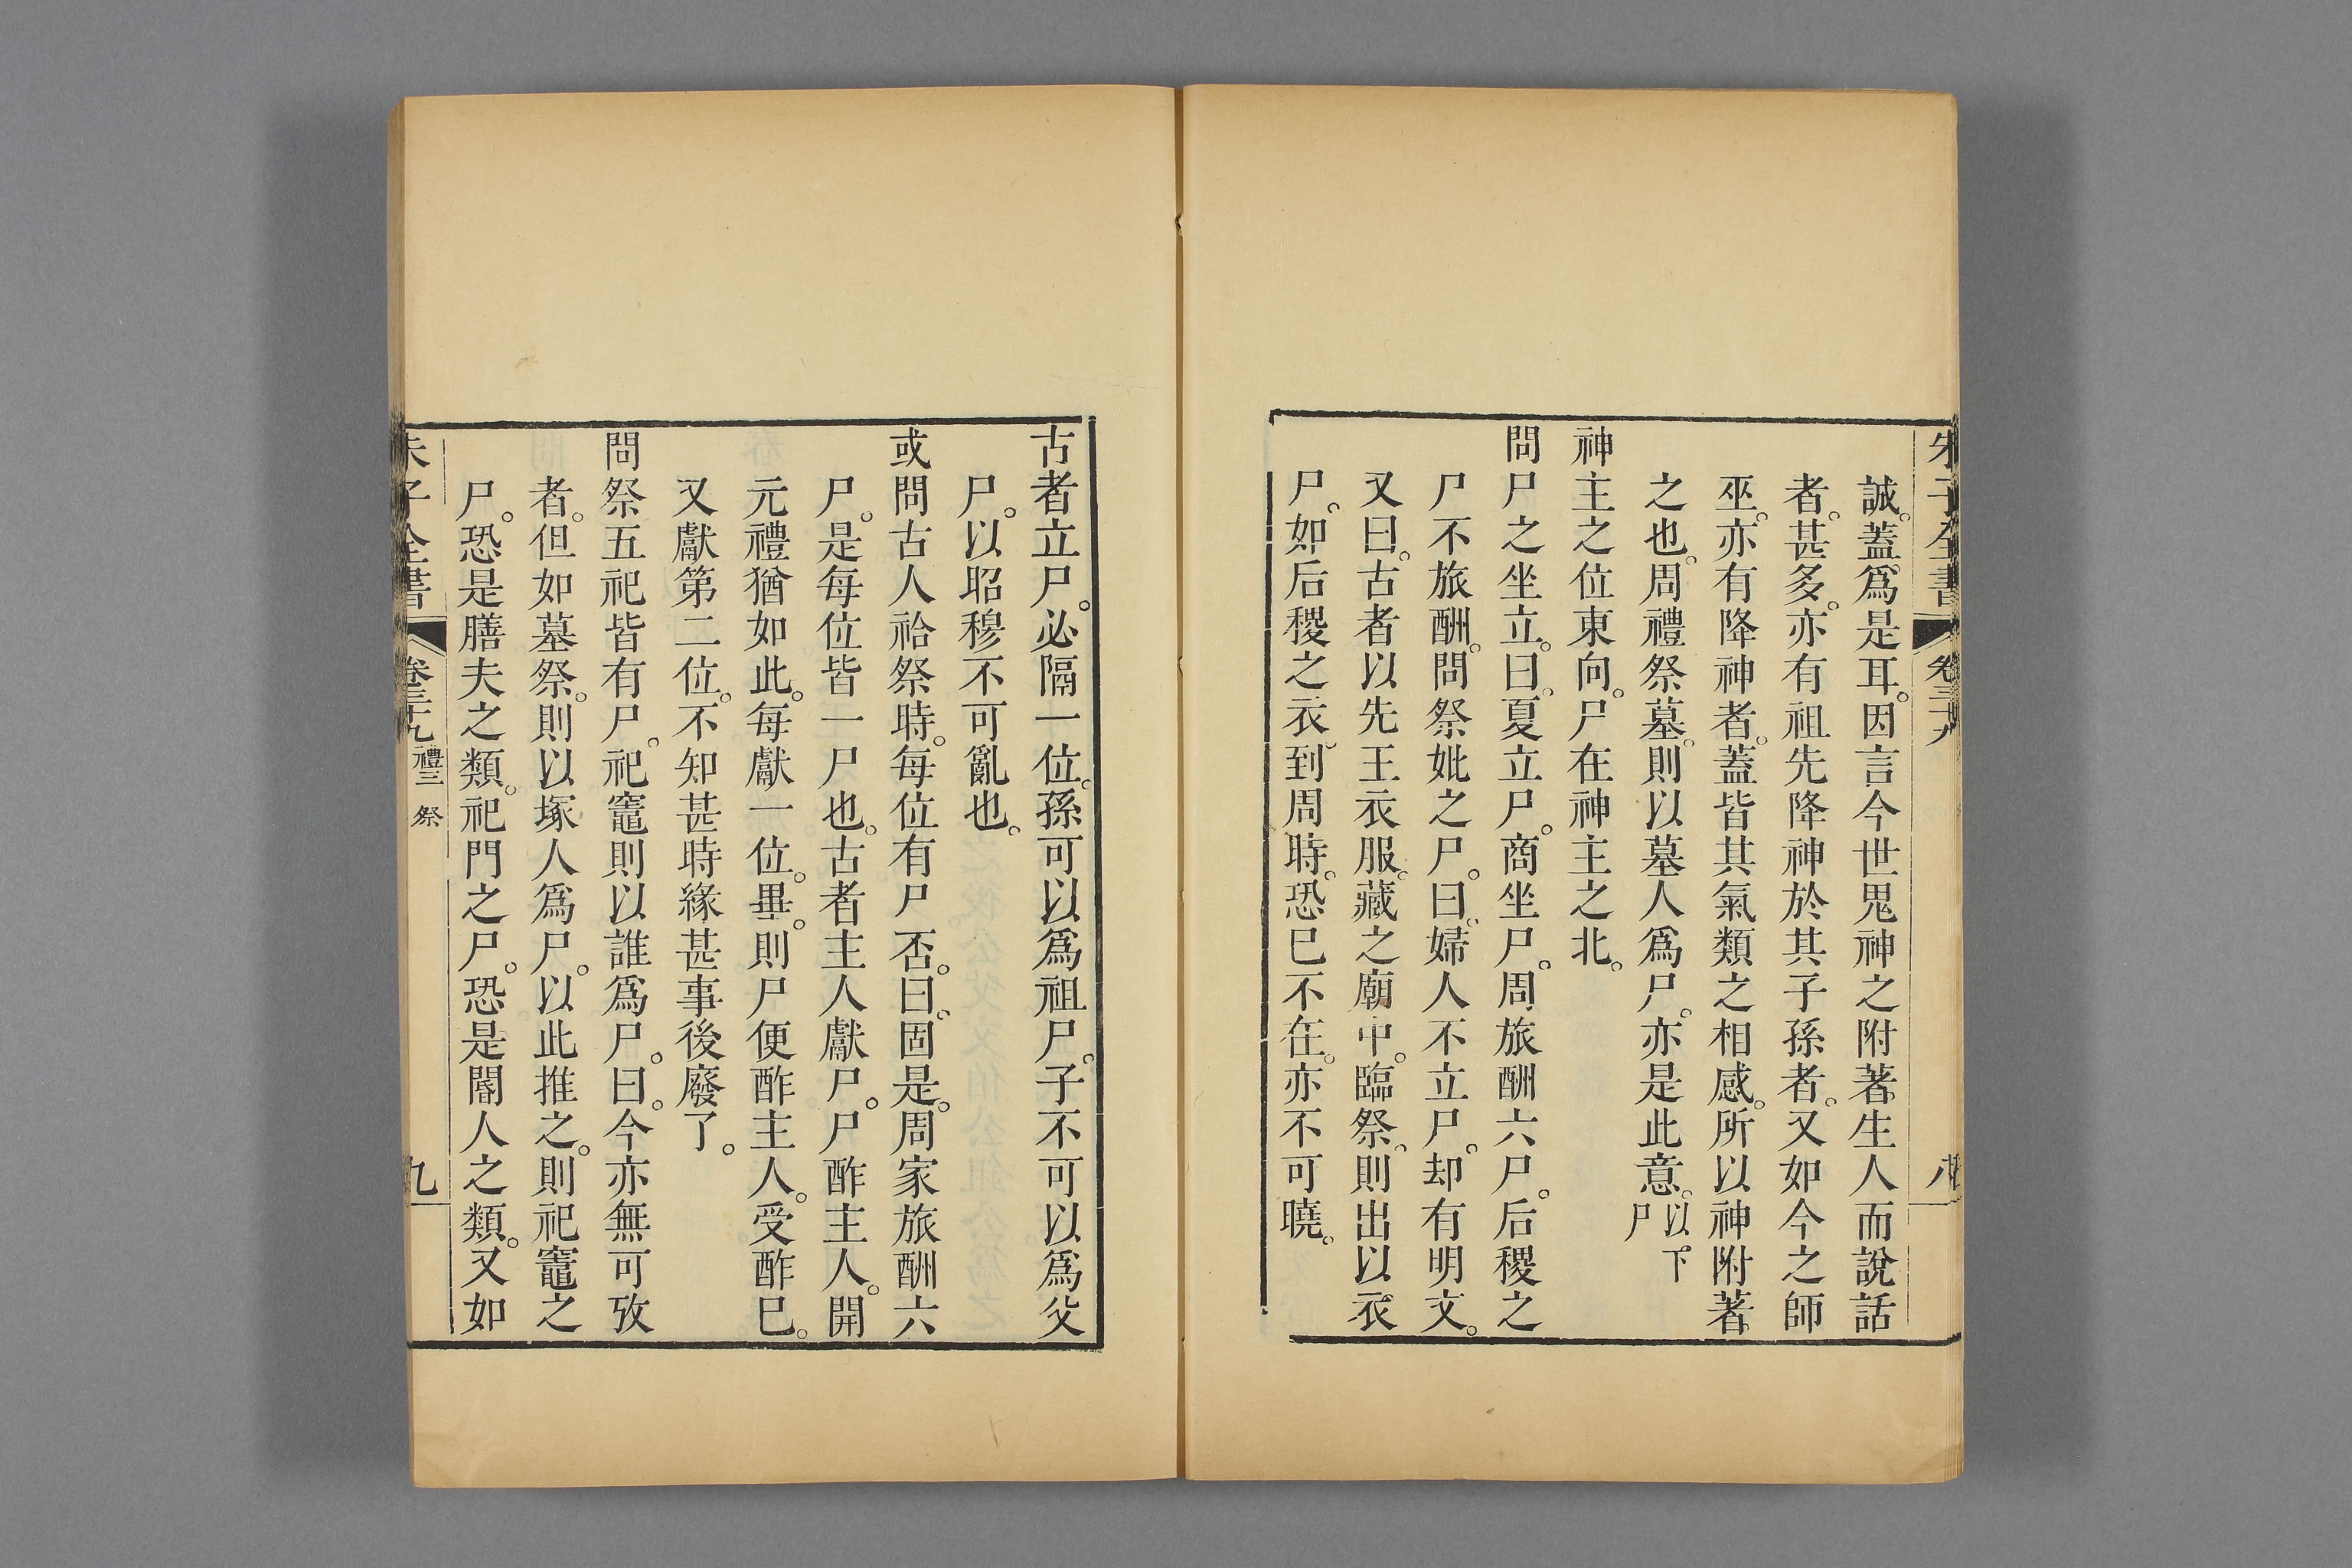 朱子全書 卷三十九 八
誠。蓋爲是耳。因言今世鬼神之附著生人而說話
者。甚多。亦有祖先降神於其子孫者。又如今之師
巫。亦有降神者。蓋皆其氣類之相感。所以神附著
之也。周禮祭墓。則以墓人爲尸。亦是此意。以下尸
神主之位東向。尸在神主之北。
問尸之坐立。曰。夏立尸。商坐尸。周旅酬六尸。后稷之
尸不旅酬。問祭妣之尸。曰。婦人不立尸。却有明文。
又曰。古者以先王衣服。藏之廟中。臨祭。則出以衣
尸。如后稷之衣。到周時。恐已不在。亦不可曉。
古者立尸。必隔一位。孫可以爲祖尸。子不可以爲父
尸。以昭穆不可亂也。
或問古人祫祭時。每位有尸否。曰。固是。周家旅酬六
尸。是每位皆一尸也。古者主人獻尸。尸酢主人。開
元禮猶如此。每獻一位。畢。則尸便酢主人。受酢已。
又獻第二位。不知甚時緣甚事後廢了。
問祭五祀皆有尸。祀竈則以誰爲尸。曰。今亦無可攷
者。但如墓祭。則以塚人爲尸。以此推之。則祀竈之
尸。恐是膳夫之類。祀門之尸。恐是閽人之類。又如
朱子全書 卷三十九 禮三 祭 九